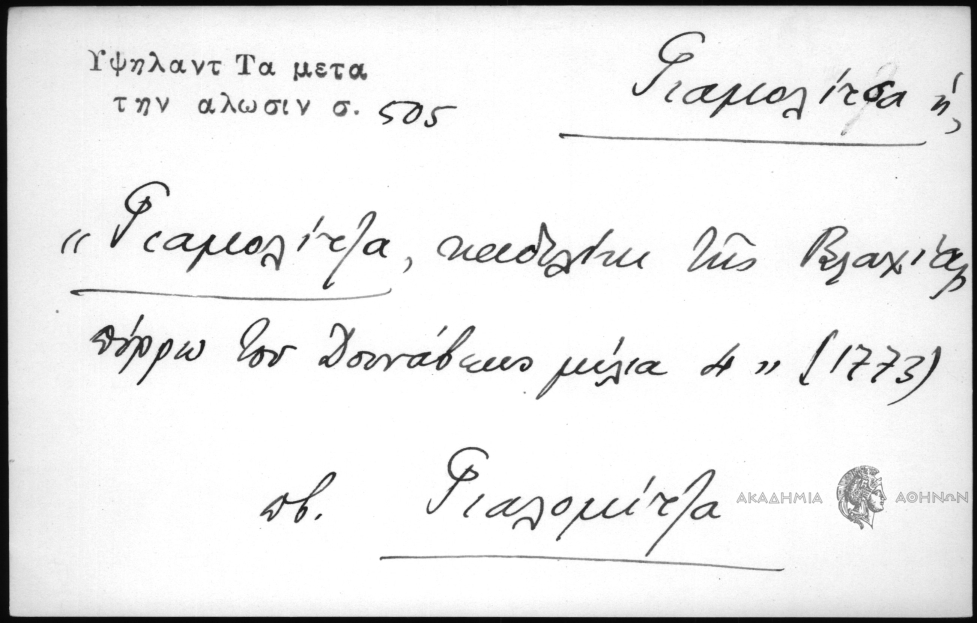 Υψηλαντ Τα μετα
την αλωσιν σ. 505
Γιαμολίτσα ἡ,
"Γιαμολίτζα, καδιλίκι τῆς Βλαχίας
πόρρω του Δουνάβεως μίλια 4" (1773)
πβ. Γιαλομίτζα
ΑΚΑΔΗΜΙΑ ΑΘΗΝΩΝ